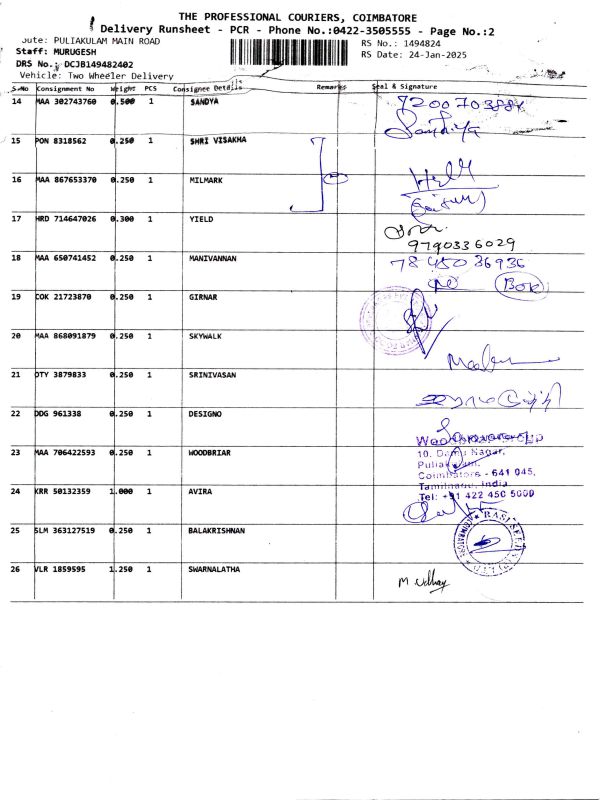 THE PROFESSIONAL COURIERS, COIMBATORE
Delivery Runsheet - PCR - Phone No.:0422-3505555 - Page No.:2
oute: PULIAKULAM MAIN ROAD
RS No.: 1494824
Staff: MURUGESH
RS Date: 24-Jan-2025
DRS No.: DCJB149482402
Vehicle: Two Wheeler Delivery
S.No Consignment No Weight PCS Consignee Details Remarks Seal & Signature
14 MAA 302743760 0.500 1 SANDYA
Sandiya
15 PON 8318562 0.250 1 SHRI VISAKHA
16 MAA 867653370 0.250 1 MILMARK
17 HRD 714647026 0.300 1 YIELD
9790336029
18 MAA 650741452 0.250 1 MANIVANNAN 78450 36936
19 COK 21723870 0.250 1 GIRNAR
20 MAA 868091879 0.250 1 SKYWALK
21 OTY 3879833 0.250 1 SRINIVASAN
22 DDG 961338 0.250 1 DESIGNO
23 MAA 706422593 0.250 1 WOODBRIAR
10, Damu Nagar,
Puliakulam,
Coimbatore - 641 045,
Tamilnadu, India
Tel: +91 422 450 5000
24 KRR 50132359 1.000 1 AVIRA
25 SLM 363127519 0.250 1 BALAKRISHNAN
26 VLR 1859595 1.250 1 SWARNALATHA
M. Udhay